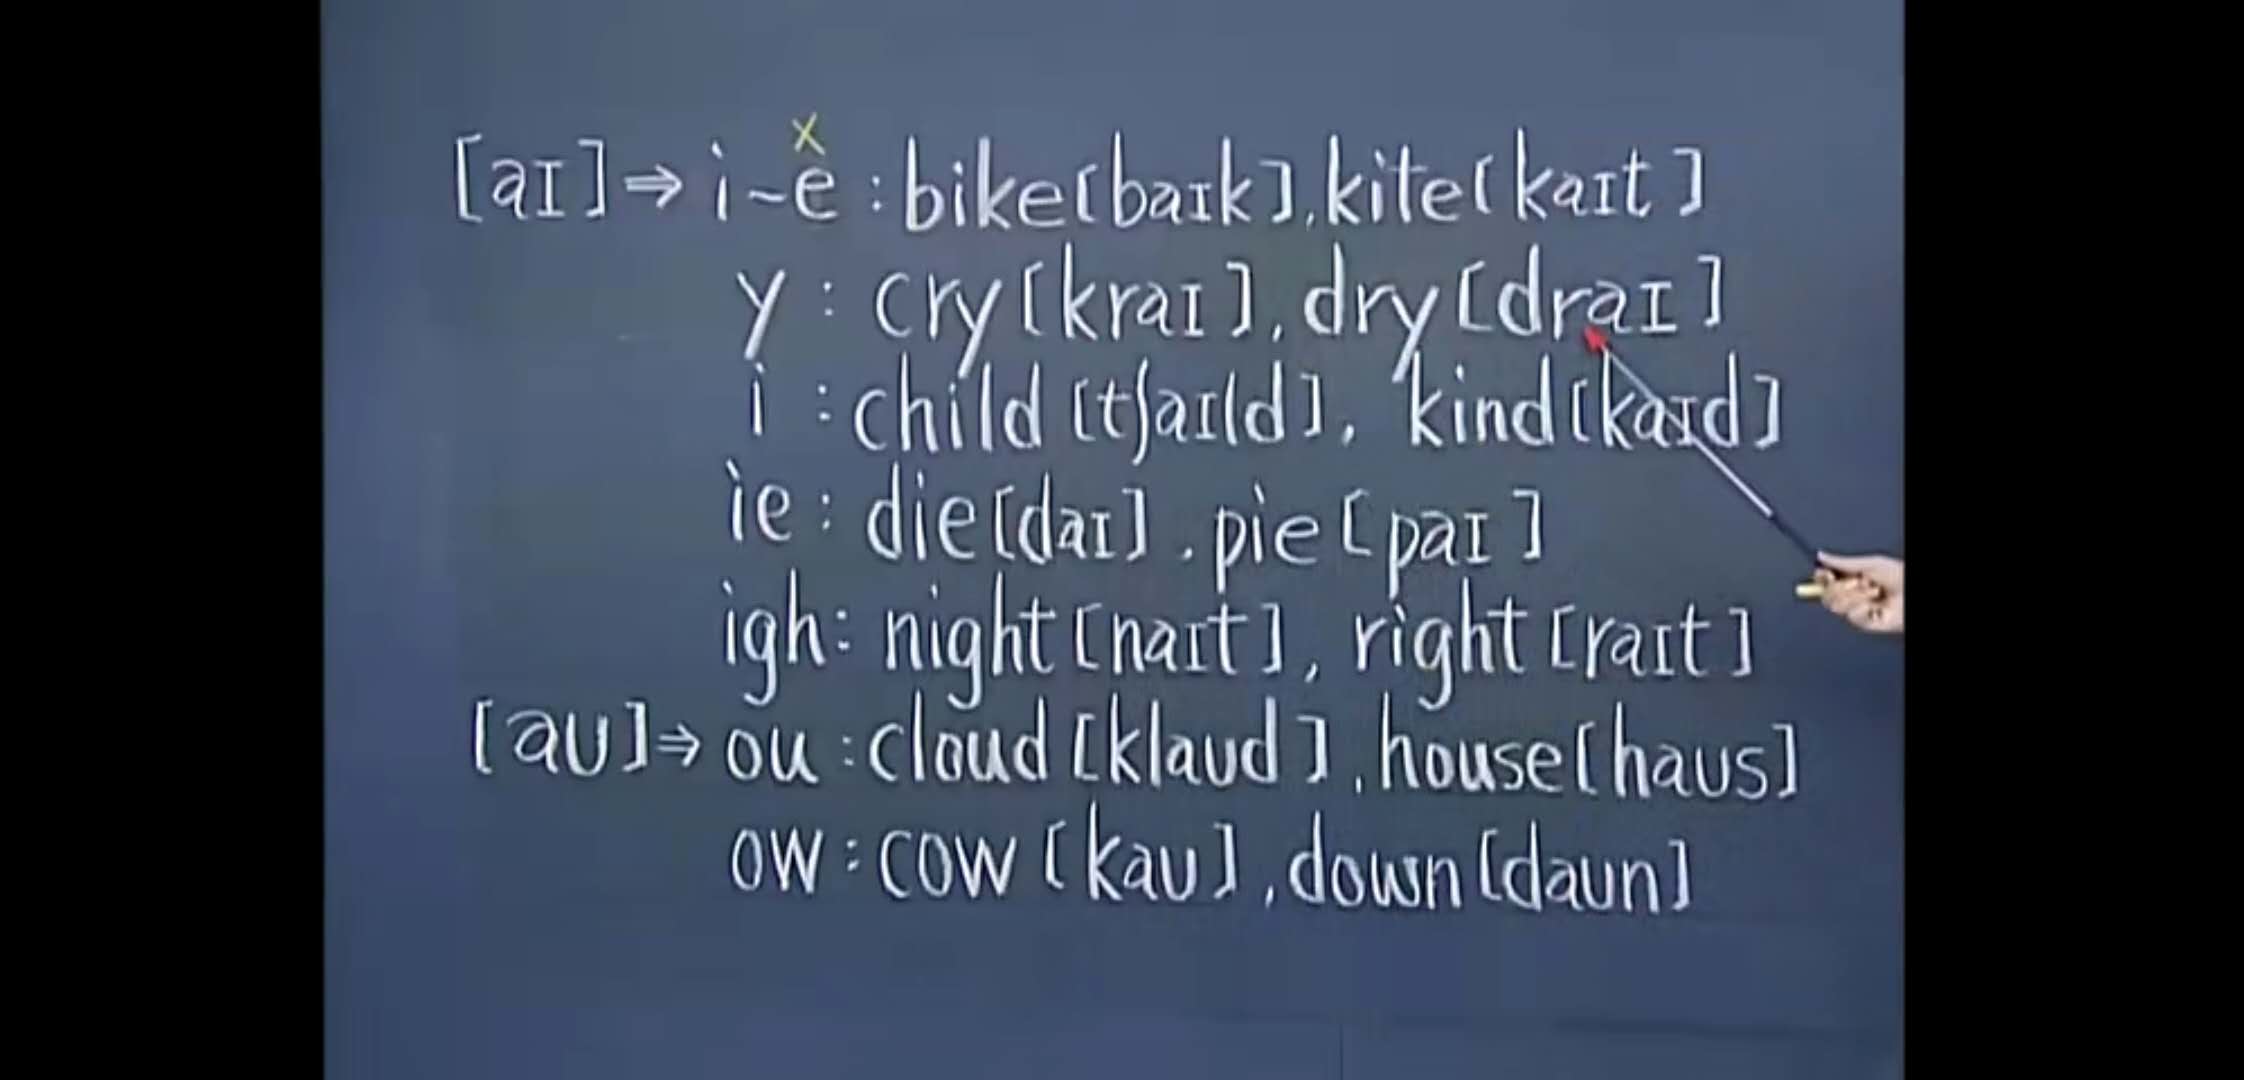 [aɪ]⇒ i~e : bike[baɪk], kite[kaɪt]
y : cry[kraɪ], dry[draɪ]
i : child[tʃaɪld], kind[kaɪd]
ie : die[daɪ], pie[paɪ]
igh : night[naɪt], right[raɪt]
[aʊ]⇒ ou : cloud[klaʊd], house[haʊs]
ow : cow[kaʊ], down[daʊn]